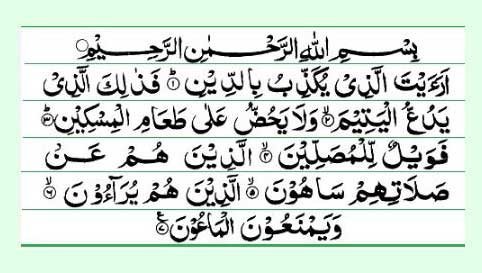 بِسْمِ اللهِ الرَّحْمٰنِ الرَّحِيْمِ
اَرَءَيْتَ الَّذِىْ يُكَذِّبُ بِالدِّيْنِ ۱ فَذٰلِكَ الَّذِىْ
يَدُعُّ الْيَتِيْمَ ۲ وَلَا يَحُضُّ عَلٰى طَعَامِ الْمِسْكِيْنِ ۳
فَوَيْلٌ لِّلْمُصَلِّيْنَ ۴ الَّذِيْنَ هُمْ عَنْ
صَلَاتِهِمْ سَاهُوْنَ ۵ الَّذِيْنَ هُمْ يُرَآءُوْنَ ۶
وَيَمْنَعُوْنَ الْمَاعُوْنَ ۷